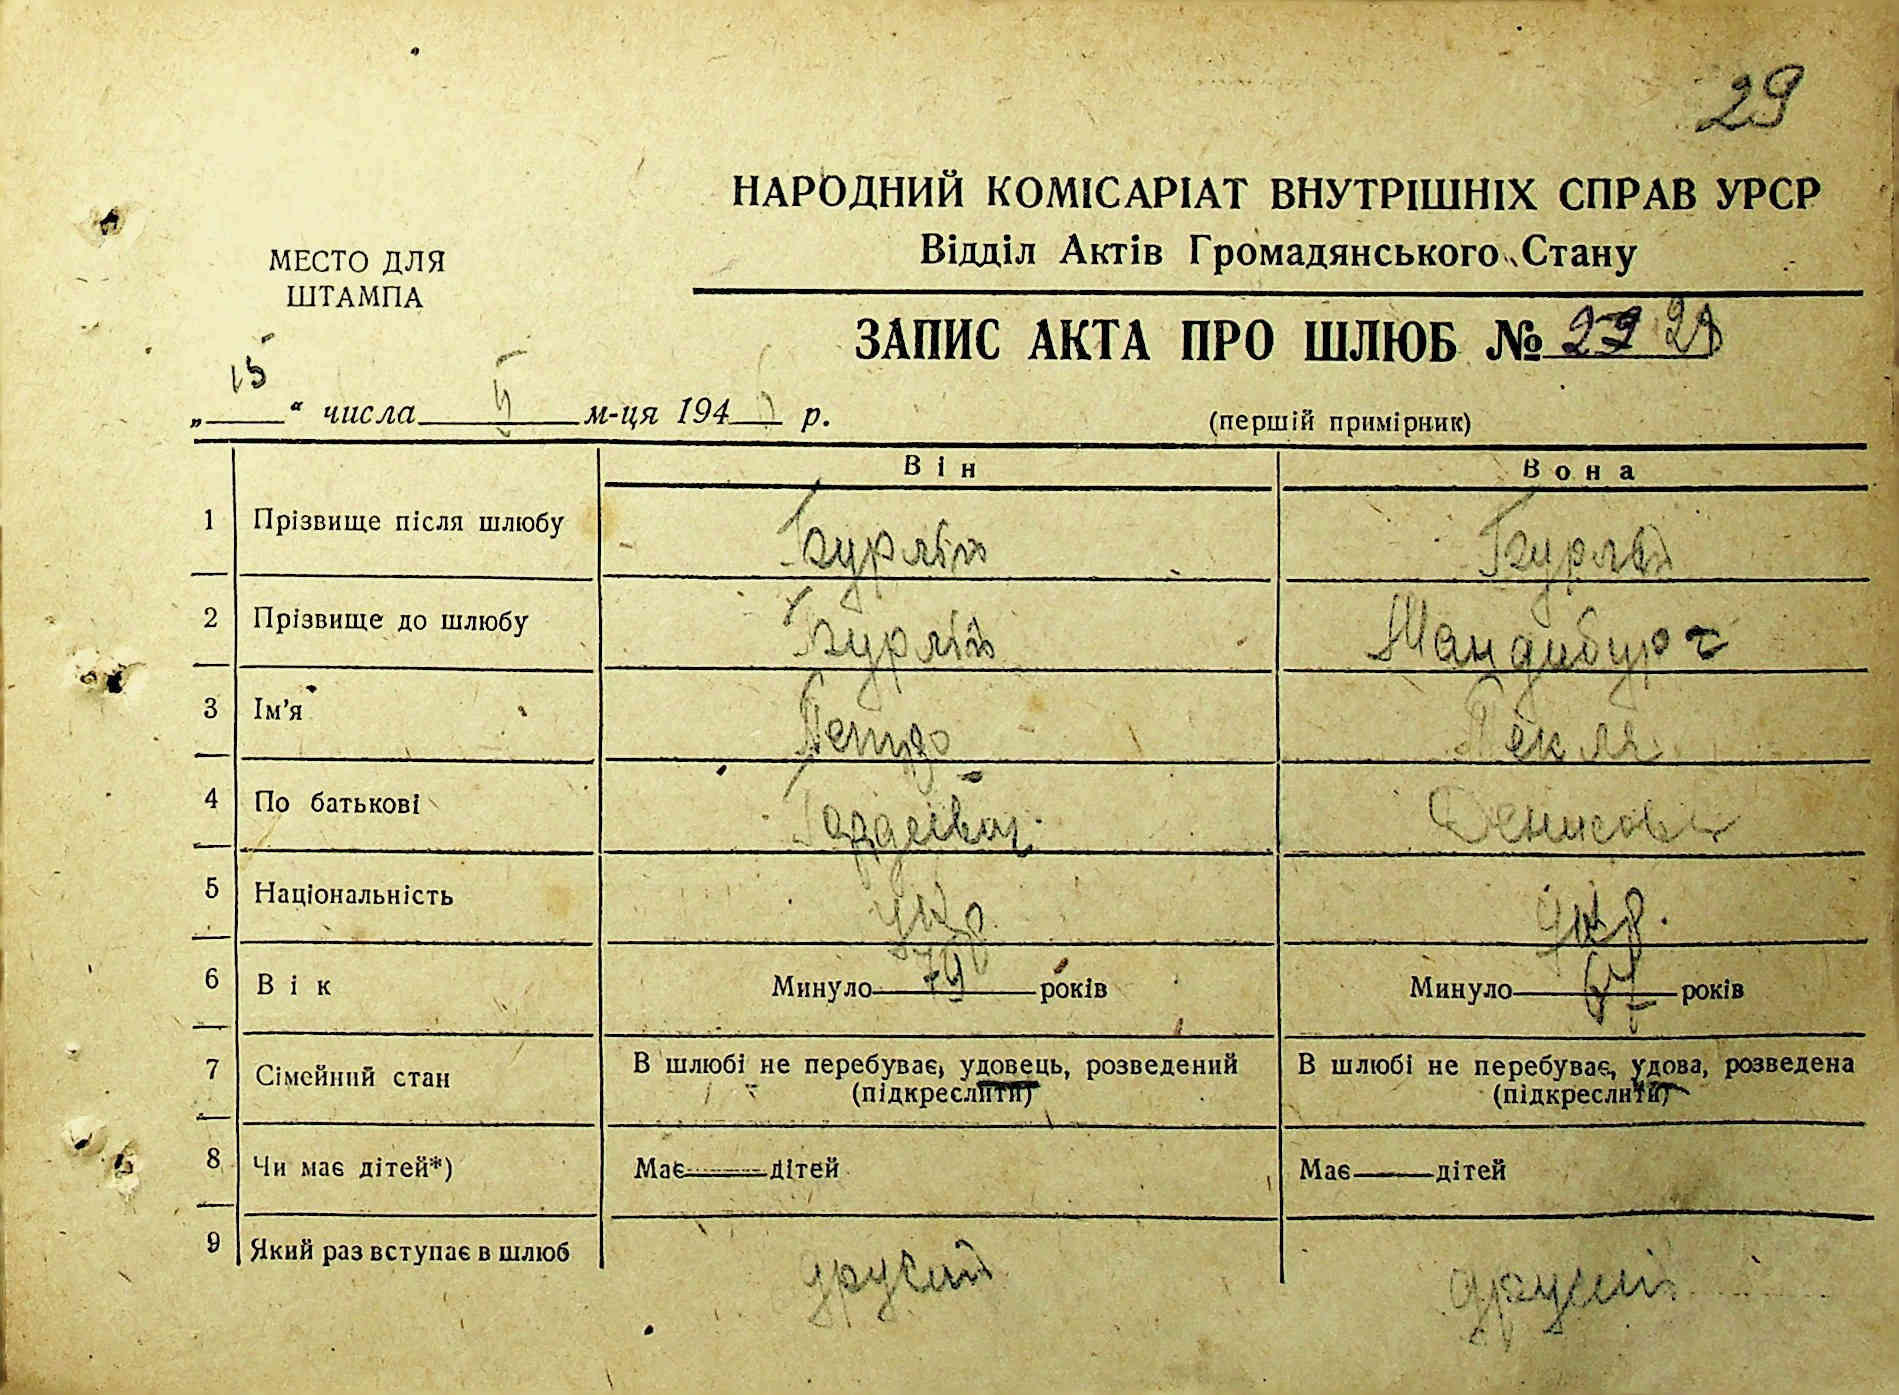 29
НАРОДНИЙ КОМІСАРІАТ ВНУТРІШНІХ СПРАВ УРСР
Відділ Актів Громадянського Стану
МЕСТО ДЛЯ
ШТАМПА
ЗАПИС АКТА ПРО ШЛЮБ №
„15“ числа м-ця 194 р.
(першій примірник)
Він Вона
1 Прізвище після шлюбу Бурлій Бурлій
2 Прізвище до шлюбу Бурлій Мандибург
3 Ім'я Петро Текля
4 По батькові Гордеївич Денисовна
5 Національність укр. укр.
6 Вік Минуло 79 років Минуло 67 років
7 Сімейний стан В шлюбі не перебуває, удовець, розведений В шлюбі не перебуває, удова, розведена
(підкреслити) (підкреслити)
8 Чи має дітей*) Має дітей Має дітей
9 Який раз вступає в шлюб другий другий